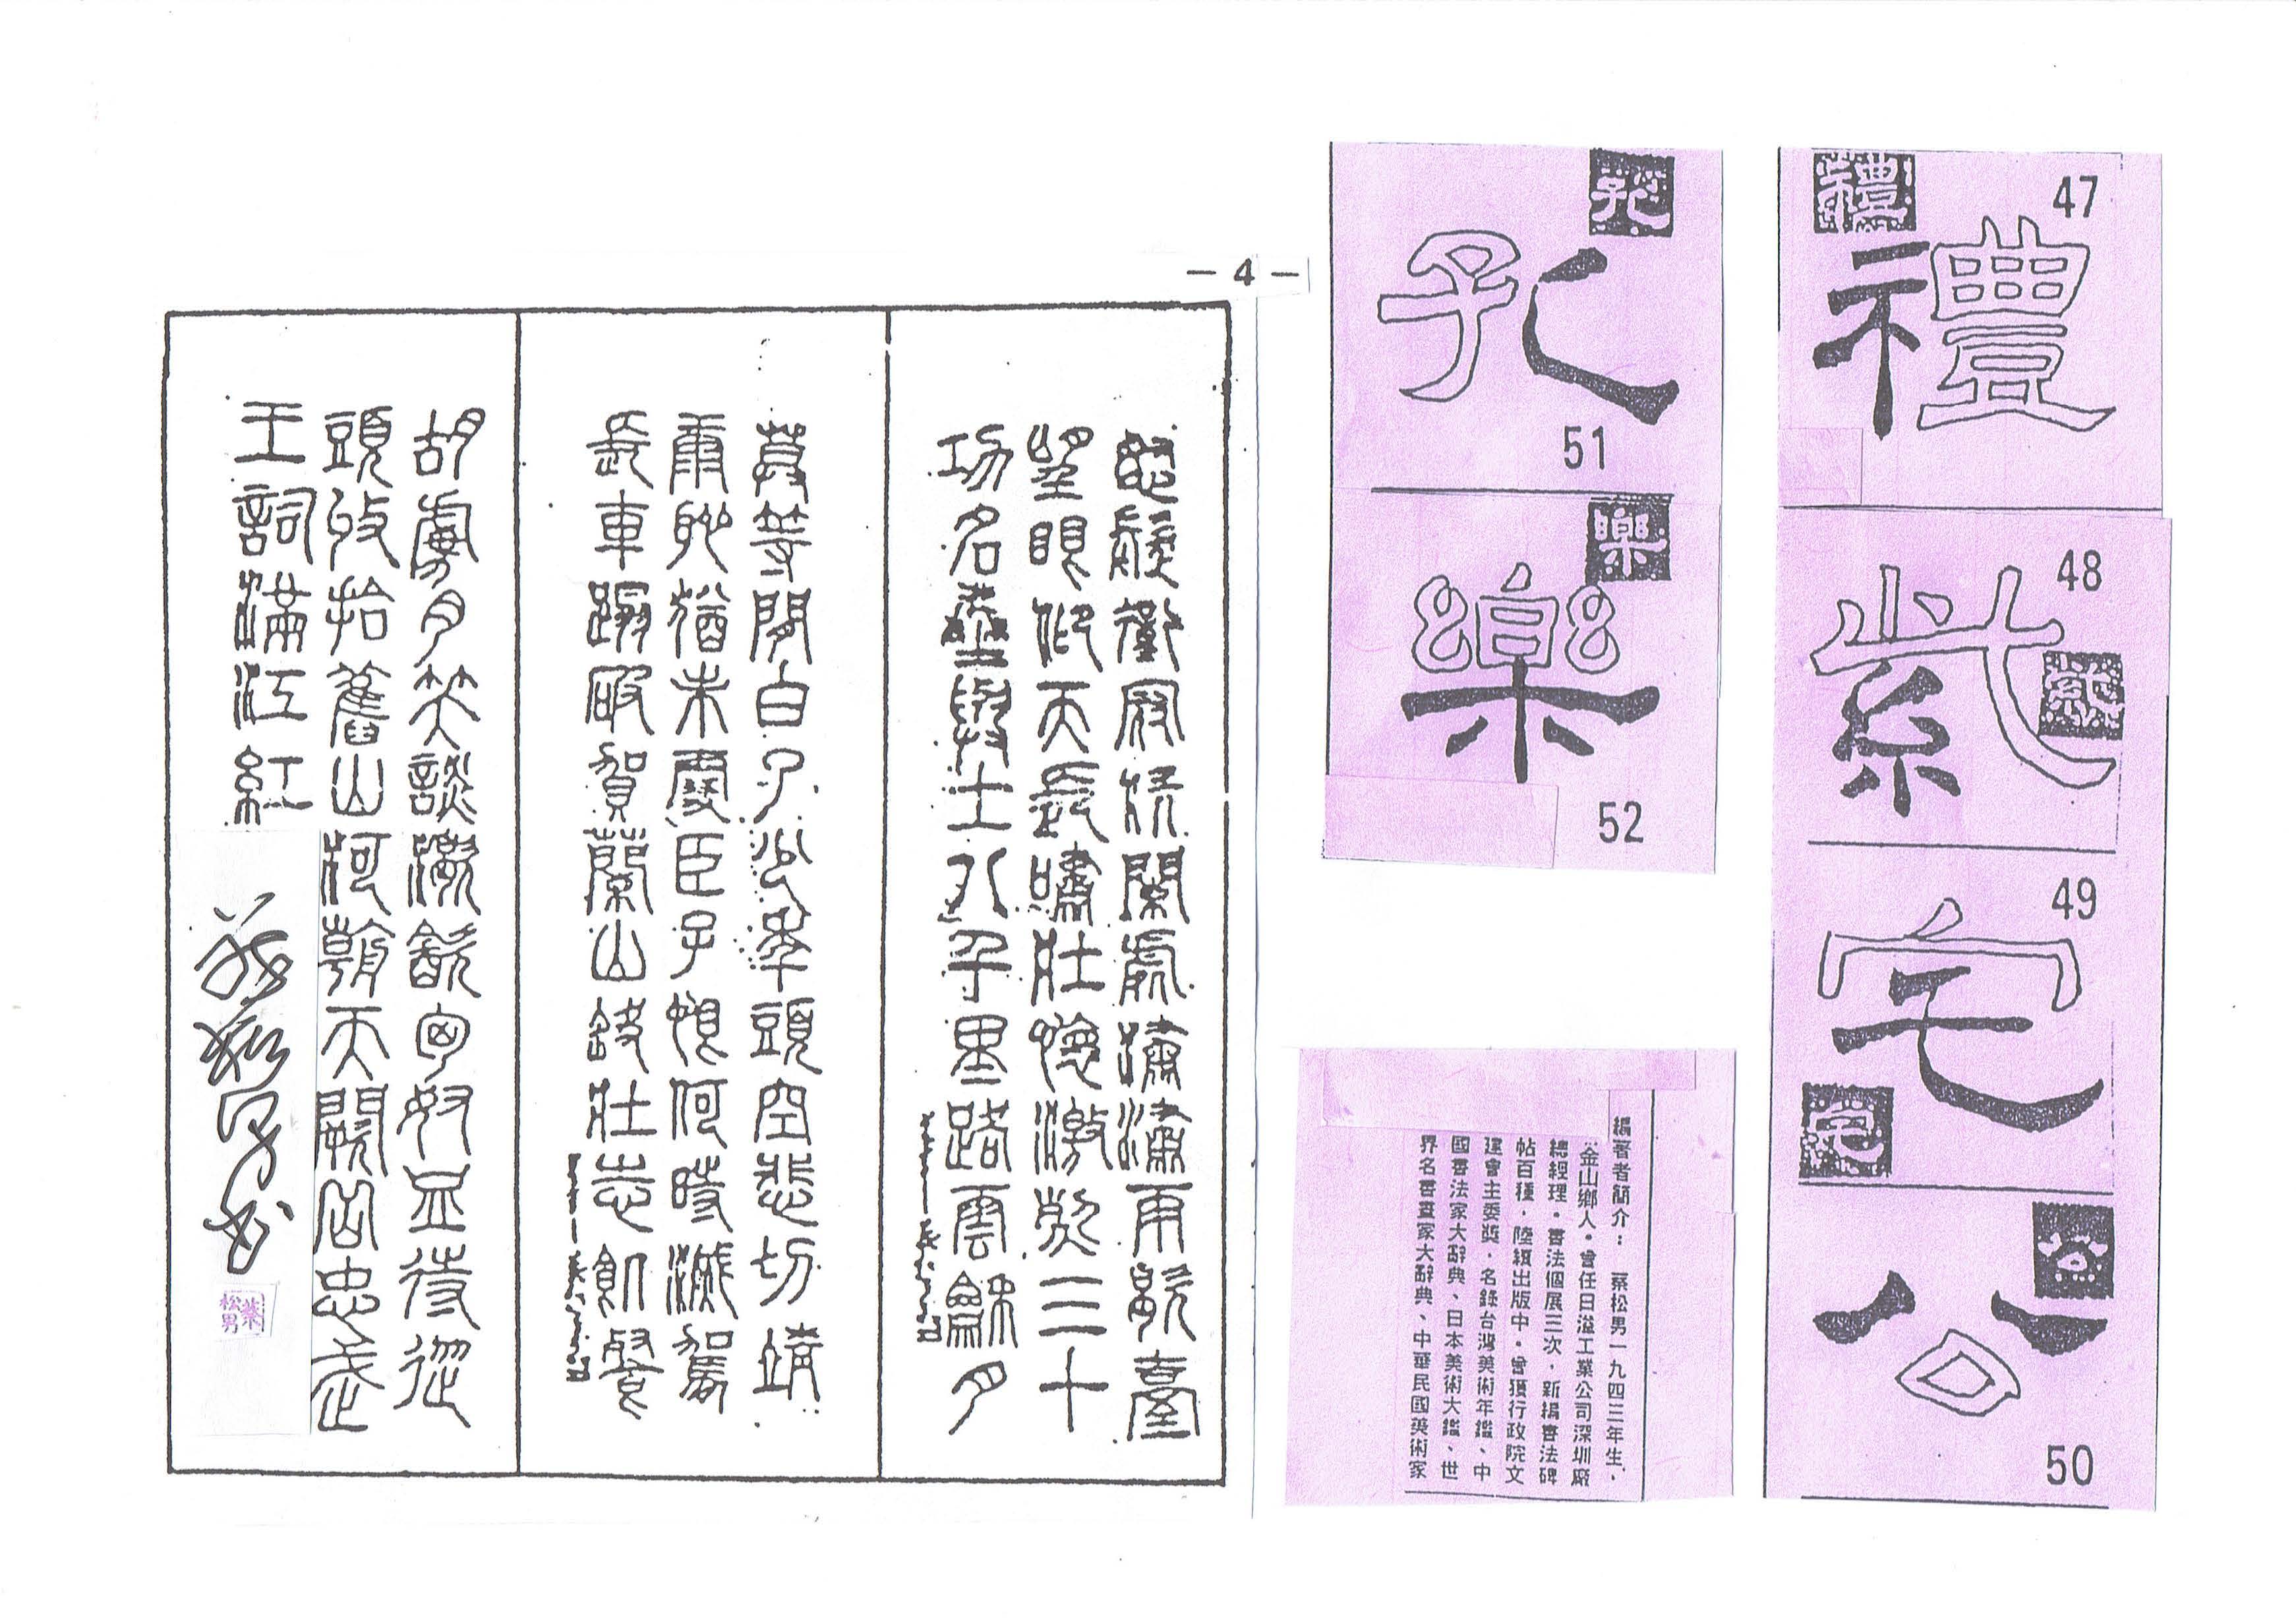 47
禮
禮
48
紫
紫
49
宅
宅
公
公
50
孔
孔
51
樂
樂
52
編著者簡介：蔡松男一九四三年生，
金山鄉人。曾任日溢工業公司深圳廠
總經理。書法個展三次，新編書法碑
帖百種，陸續出版中。曾獲行政院文
建會主委獎，名錄台灣美術年鑑、中
國書法家大辭典、日本美術大鑑、世
界名書畫家大辭典、中華民國美術家
－4－
怒髮衝冠憑闌處瀟瀟雨歇臺
望眼仰天長嘯壯懷激烈三十
功名塵與土八千里路雲龢月
莫等閒白了少年頭空悲切靖
康恥猶未雪臣子恨何時滅駕
長車踏破賀蘭山缺壯志飢餐
胡虜肉笑談渴飲匈奴血待從
頭收拾舊山河朝天闕岳忠武
王詞滿江紅
蔡松男書
蔡松男